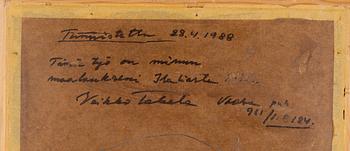 Tunnistettu 28.4.1988
Tämä työ on minun
maalaukseni Italiasta
Veikko Takala Vaasa puh
961/